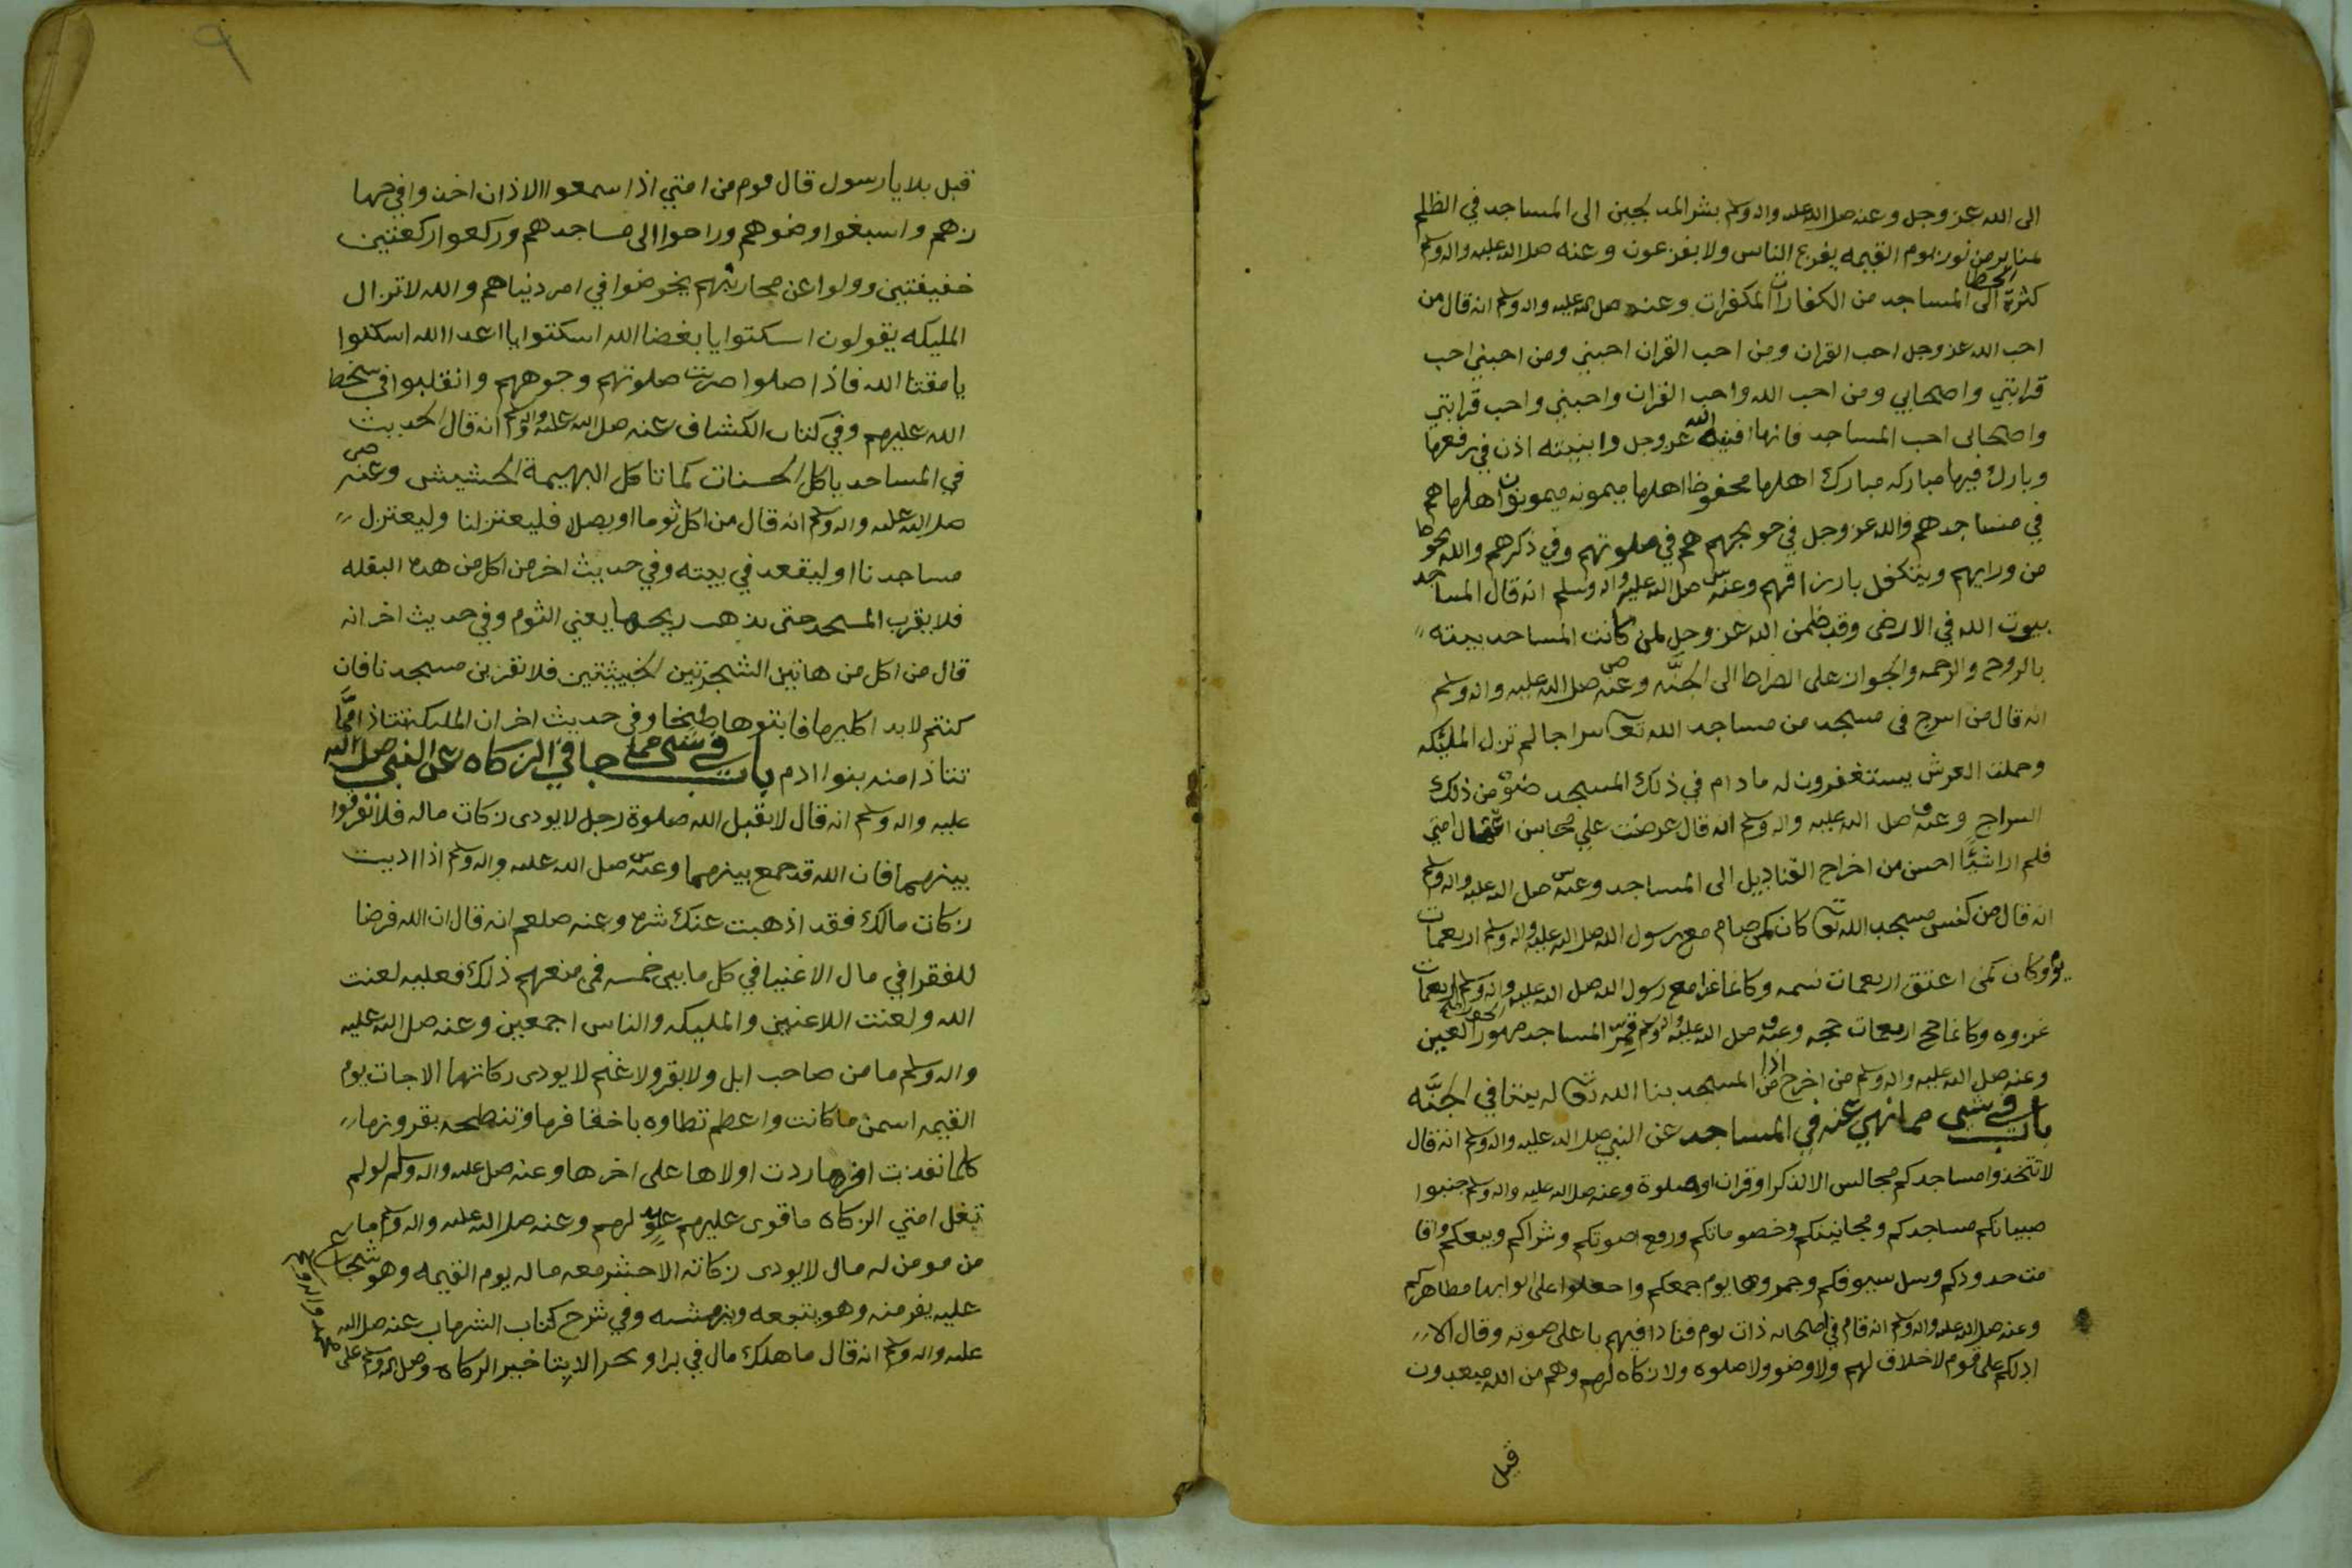 الى الله عز وجل وعنه صلى الله عليه واله وسلم بشر المدلجين الى المساجد في الظلم
بمنابر من نور يوم القيمه يفزع الناس ولا يفزعون وعنه صلى الله عليه واله وسلم
كثرة الخطا الى المساجد من الكفارات المكفرات وعنه صلى الله عليه واله وسلم انه قال من
احب الله عز وجل احب القران ومن احب القران احبني ومن احبني احب
قرابتي واصحابي ومن احب الله واحب القران واحبني واحب قرابتي
واصحابي احب المساجد فانها افنية الله عز وجل وابنيته اذن في رفعها
وبارك فيها مباركه مبارك اهلها محفوظا اهلها ميمونه ميمونون اهلها هم
في مساجدهم والله عز وجل في حويجهم هم في صلوتهم وفي ذكرهم والله يحوطا
من ورايهم ويتكفل بارزاقهم وعنه صلى الله عليه واله وسلم انه قال المساجد
بيوت الله في الارض وقد ضمن الله عز وجل لمن كانت المساجد بيته
بالروح والرحمه والجواز على الصراط الى الجنّه وعنه صلى الله عليه واله وسلم
انه قال من اسرج في مسجد من مساجد الله تعا سراجا لم تزل المليكه
وحملت العرش يستغفرون له ما دام في ذلك المسجد ضوء من ذلك
السراج وعنه صلى الله عليه واله وسلم انه قال عرضت علي محاسن اعمال امتي
فلم ارا شيًا احسن من اخراج القناديل الى المساجد وعنه صلى الله عليه واله وسلم
انه قال من كنس مسجد الله تعا كان كمن صام مع رسول الله صلى الله عليه واله وسلم اربعمات
يوم وكان كمن اعتق اربعمات نسمه وكانما غزا مع رسول الله صلى الله عليه واله وسلم اربعمات
غزوه وكانما حج اربعمات حجه وعنه صلى الله عليه واله وسلم قم المساجد مهور الحور العين
وعنه صلى الله عليه واله وسلم من اخرج اذا من المسجد بنا الله تعا له بيتا في الجنّه
باب في شي مما نهي عنه في المساجد عن النبي صلى الله عليه واله وسلم انه قال
لا تتخذوا مساجدكم مجالس الا لذكر او قران او صلوة وعنه صلى الله عليه واله وسلم جنبوا
صبيانكم مساجدكم ومجانينكم وخصوماتكم ورفع اصوتكم وشراكم وبيعكم واقا
مت حدودكم وسل سيوفكم وجمروها يوم جمعكم واجعلوا على ابوابها مطاهركم
وعنه صلى الله عليه واله وسلم انه قام في اصحابه ذات يوم فنادا فيهم باعلى صوته وقال الا
ادلكم على قوم لا خلاق لهم ولا وضو ولا صلوه ولا زكاه لهم وهم من الله مبعدون
قيل
٩
قيل بلا يا رسول قال قوم من امتي اذا سمعوا الاذان اخذوا في جها
زهم واسبغوا وضوهم وراحوا الى مساجدهم وركعوا ركعتين
خفيفتين وولوا عن محاريبهم يخوضوا في امر دنياهم والله لا تزال
المليكه يقولون اسكتوا يا بغضا الله اسكتوا يا اعدا الله اسكتوا
يا مقتا الله فاذا صلوا ضربت صلوتهم وجوههم وانقلبوا في سخط
الله عليهم وفي كتاب الكشاف عنه صلى الله عليه واله وسلم انه قال الحديث
في المساجد ياكل الحسنات كما تاكل البهيمة الحشيش وعنه
صلى الله عليه واله وسلم انه قال من اكل ثوما او بصلا فليعتزلنا وليعتزل
مساجدنا او ليقعد في بيته وفي حديث اخر من اكل من هذه البقله
فلا يقرب المسجد حتى يذهب ريحها يعني الثوم وفي حديث اخر انه
قال من اكل من هاتين الشجرتين الخبيثتين فلا تقربن مسجدنا فان
كنتم لا بد اكليهما فابتوها طبخا وفي حديث اخر ان المليكه تتاذا ممّا
تتاذا منه بنوا ادم باب في شي مما جا في الزكاه عن النبي صلى الله
عليه واله وسلم انه قال لا يقبل الله صلوة رجل لا يودى زكات ماله فلا تفرقوا
بينهما فان الله قد جمع بينهما وعنه صلى الله عليه واله وسلم اذا اديت
زكات مالك فقد اذهبت عنك شره وعنه صلعم انه قال ان الله فرضا
للفقرا في مال الاغنيا في كل مايتي خمسه فمن منعهم ذلك فعليه لعنت
الله ولعنت اللاعنين والمليكه والناس اجمعين وعنه صلى الله عليه
واله وسلم ما من صاحب ابل ولا بقر ولا غنم لا يودى زكاتها الا جات يوم
القيمه اسمن ما كانت واعظم تطاوه باخفافها وتنطحه بقرونها
كلما نفدت اخرها ردت اولاها على اخرها وعنه صلى عليه واله وسلم لو لم
تغل امتي الزكاه ما قوى عليهم عدو لهم وعنه صلى الله عليه واله وسلم ما
من مومن له مال لا يودى زكاته الا حشر معه ماله يوم القيمه وهو شجاع
عليه يفر منه وهو يتبعه وينهشه وفي شرح كتاب الشهاب عنه صلى الله
عليه واله وسلم انه قال ما هلك مال في بر او بحر الا بتاخير الزكاه وصلى الله وسلم على
محمد واله وسلم